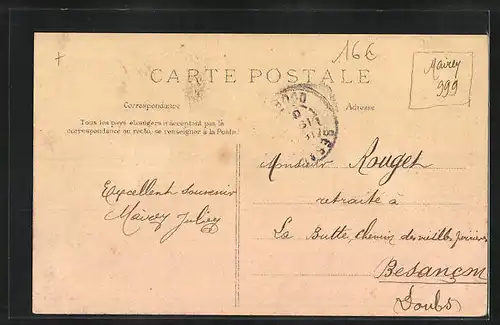 16€
Mairey
999
CARTE POSTALE
Correspondance
Adresse
Tous les pays étrangers n'acceptant pas la
correspondance au recto, se renseigner à la Poste
Monsieur Rouget
retraité à
Excellent souvenir
Mairey
La Butte, chemin des vieilles
Besançon
Doubs